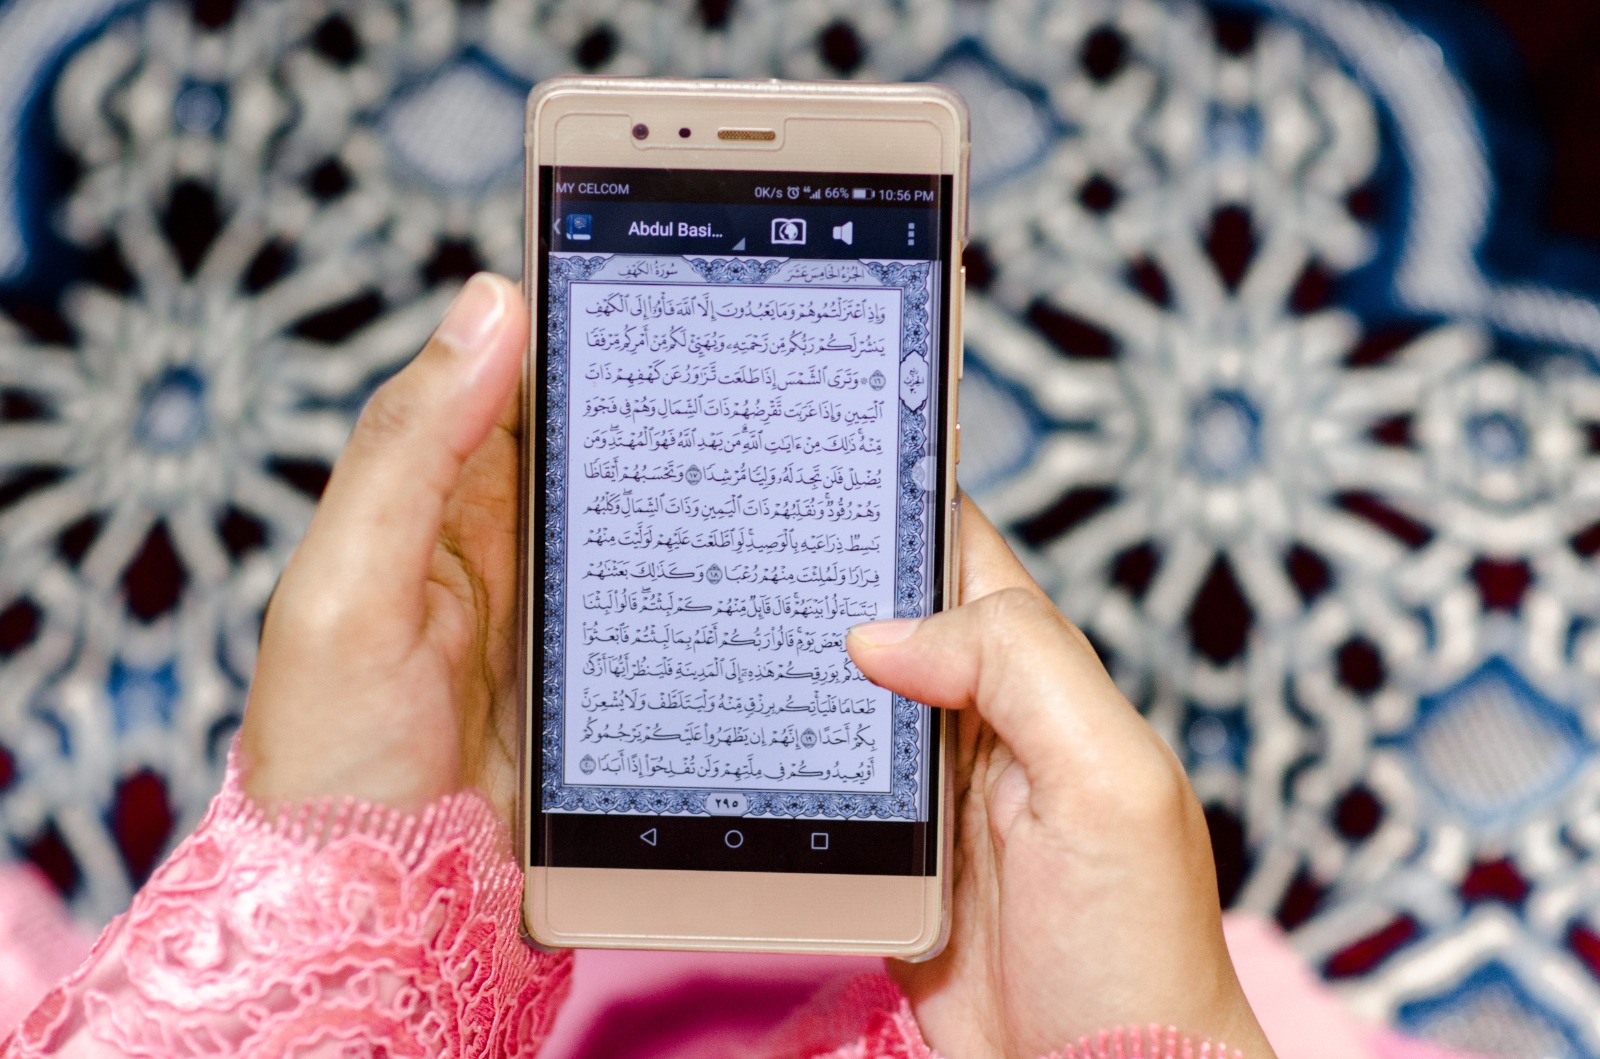 MY CELCOM 0K/s 66% 10:56 PM
Abdul Basi...
سُورَةُ الكَهْفِ الجُزْءُ الخَامِسَ عَشَرَ
وَإِذِ ٱعْتَزَلْتُمُوهُمْ وَمَا يَعْبُدُونَ إِلَّا ٱللَّهَ فَأْوُۥٓا۟ إِلَى ٱلْكَهْفِ
يَنشُرْ لَكُمْ رَبُّكُم مِّن رَّحْمَتِهِۦ وَيُهَيِّئْ لَكُم مِّنْ أَمْرِكُم مِّرْفَقًا
١٦ ۞ وَتَرَى ٱلشَّمْسَ إِذَا طَلَعَت تَّزَٰوَرُ عَن كَهْفِهِمْ ذَاتَ
ٱلْيَمِينِ وَإِذَا غَرَبَت تَّقْرِضُهُمْ ذَاتَ ٱلشِّمَالِ وَهُمْ فِى فَجْوَةٍ
مِّنْهُ ۚ ذَٰلِكَ مِنْ ءَايَٰتِ ٱللَّهِ ۗ مَن يَهْدِ ٱللَّهُ فَهُوَ ٱلْمُهْتَدِ ۖ وَمَن
يُضْلِلْ فَلَن تَجِدَ لَهُۥ وَلِيًّا مُّرْشِدًا ١٧ وَتَحْسَبُهُمْ أَيْقَاظًا
وَهُمْ رُقُودٌ ۚ وَنُقَلِّبُهُمْ ذَاتَ ٱلْيَمِينِ وَذَاتَ ٱلشِّمَالِ ۖ وَكَلْبُهُم
بَٰسِطٌ ذِرَاعَيْهِ بِٱلْوَصِيدِ ۚ لَوِ ٱطَّلَعْتَ عَلَيْهِمْ لَوَلَّيْتَ مِنْهُمْ
فِرَارًا وَلَمُلِئْتَ مِنْهُمْ رُعْبًا ١٨ وَكَذَٰلِكَ بَعَثْنَٰهُمْ
لِيَتَسَآءَلُوا۟ بَيْنَهُمْ ۚ قَالَ قَآئِلٌ مِّنْهُمْ كَمْ لَبِثْتُمْ ۖ قَالُوا۟ لَبِثْنَا
بَعْضَ يَوْمٍ ۚ قَالُوا۟ رَبُّكُمْ أَعْلَمُ بِمَا لَبِثْتُمْ فَٱبْعَثُوٓا۟
بِوَرِقِكُمْ هَٰذِهِۦٓ إِلَى ٱلْمَدِينَةِ فَلْيَنظُرْ أَيُّهَآ أَزْكَىٰ
طَعَامًا فَلْيَأْتِكُم بِرِزْقٍ مِّنْهُ وَلْيَتَلَطَّفْ وَلَا يُشْعِرَنَّ
بِكُمْ أَحَدًا ١٩ إِنَّهُمْ إِن يَظْهَرُوا۟ عَلَيْكُمْ يَرْجُمُوكُمْ
أَوْ يُعِيدُوكُمْ فِى مِلَّتِهِمْ وَلَن تُفْلِحُوٓا۟ إِذًا أَبَدًا ٢٠
٢٩٥